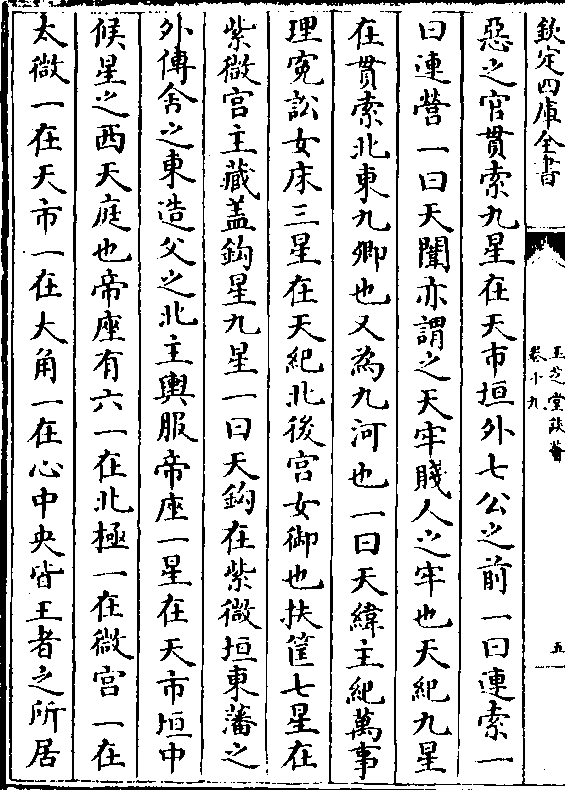 欽定四庫全書
玉芝堂談薈
卷十九
五
惡之官貫索九星在天市垣外七公之前一曰連索一
曰連營一曰天闈亦謂之天牢賤人之牢也天紀九星
在貫索北東九卿也又為九河也一曰天緯主紀萬事
理寃訟女床三星在天紀北後宫女御也扶筐七星在
紫微宫主藏盖鈎星九星一曰天鈎在紫微垣東藩之
外傅舍之東造父之北主輿服帝座一星在天市垣中
候星之西天庭也帝座有六一在北極一在微宫一在
太微一在天市一在大角一在心中央皆王者之所居